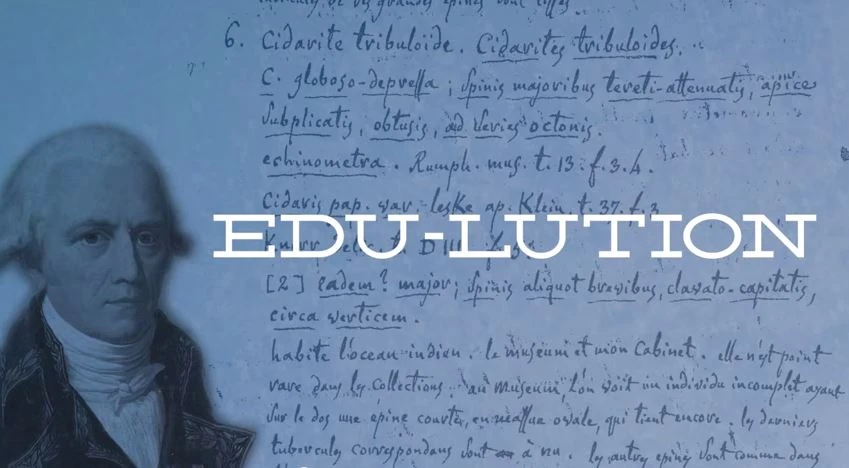 6. Cidarite tribuloide. Cidarites tribuloides.
C. globoso-depressa; spinis majoribus tereti-attenuatis, apice
subplicatis, obtusis, ad series octonis.
echinometra. Rumph. mus. t. 13. f. 3. 4.
Cidaris pap. var. leske ap. Klein. t. 37. f. 3
EDU-LUTION
Knorr D III. f. 5.
[2] eadem? major; spinis aliquot brevibus, clavato-capitatis,
circa verticem.
habite l'ocean indien. le museum et mon Cabinet. elle n'est point
rare dans les Collections. au museum, l'on voit un individu incomplet ayant
sur le dos une epine courte, en ovale, qui tient encore. les derniers
tubercules correspondans sont à nu. les autres epines sont comme dans